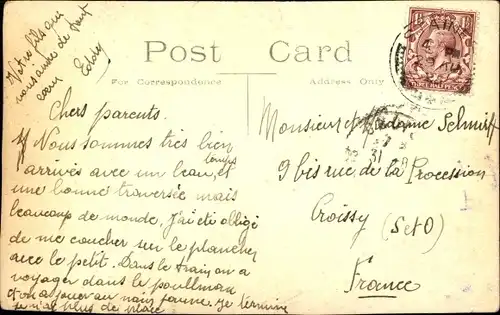 Votre fils qui
vous aime de tout
cœur Eddy
Post Card
For Correspondence
Address Only
THREE HALFPENCE
Chers parents.
Nous sommes très bien
arrivés avec un beau temps et
une bonne traversée mais
beaucoup de monde. J'ai été obligé
de me coucher sur le plancher
avec le petit. Dans le train on a
voyager dans le poullman
et on a jouer au nain jaune. Je termine
je n'ai plus de place
Monsieur et Madame Schmirf
9 bis rue de la Procession
Croissy
(S et O)
France